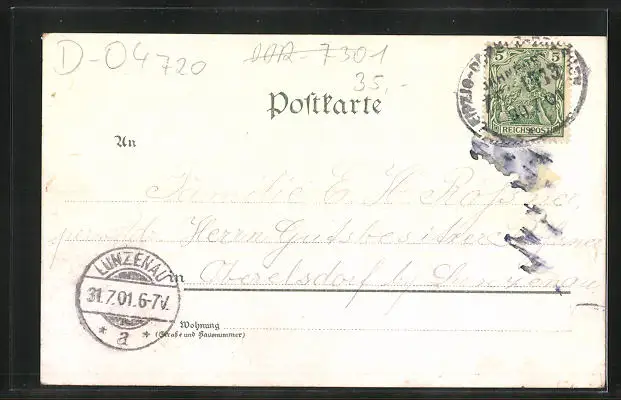 D-04720 DDR-7301
35,-
5 5
LEIPZIG-
REICHSPOST
Postkarte
An
Familie E. H.
Herrn Gutsbesitzer
in Oberelsdorf by Lunzenau
LUNZENAU
31.7.01.6-7V.
* a *
Wohnung
(Straße und Hausnummer)